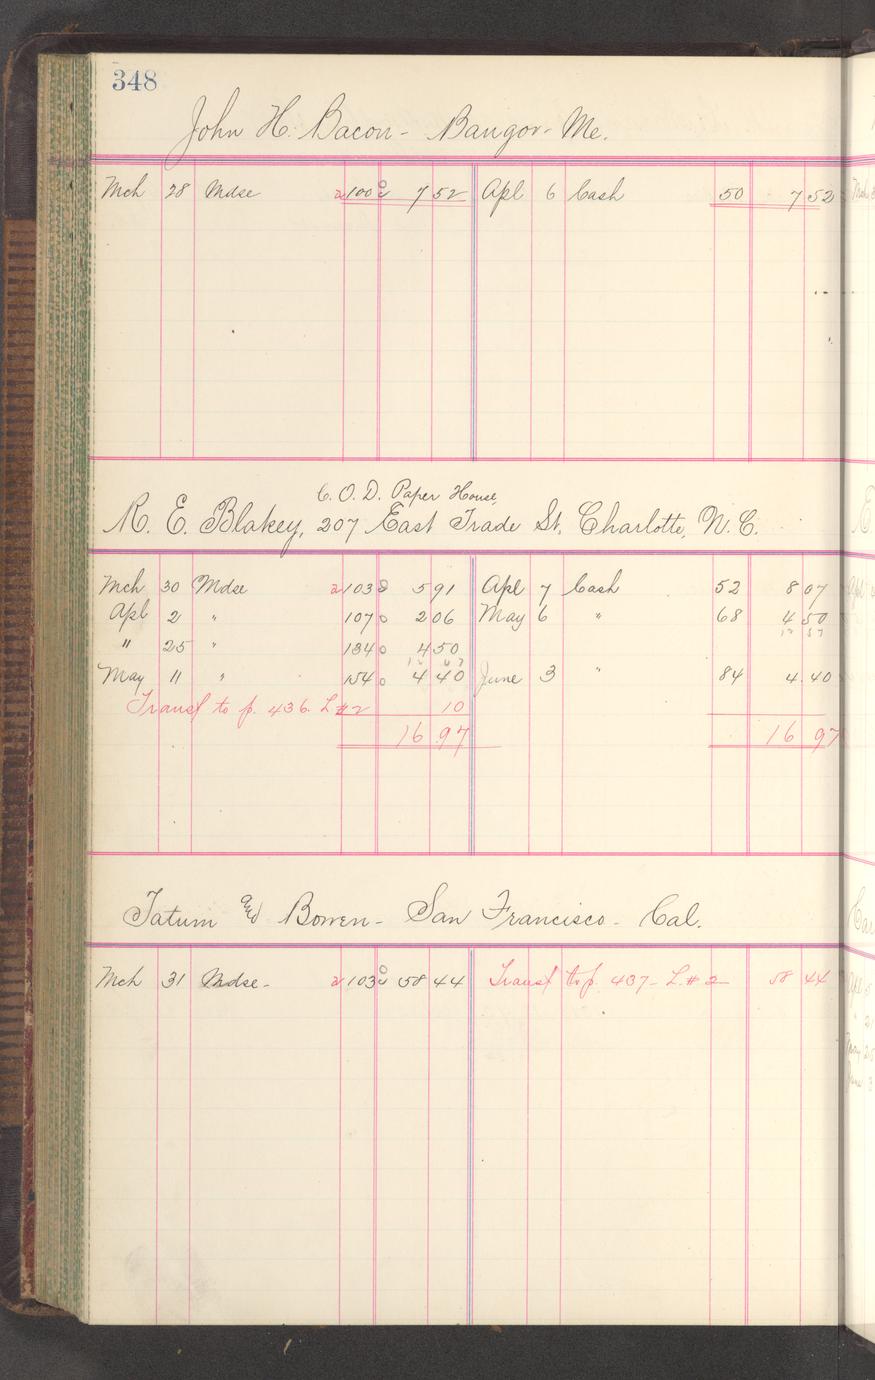 348
John H. Bacon - Bangor - Me.
Mch 28 Mdse 2 100 7 52 Apl 6 Cash 50 7 52
C. O. D. Paper House,
R. E. Blakey, 207 East Trade St. Charlotte, N. C.
Mch 30 Mdse 2 103 5 91 Apl 7 Cash 52 8 07
Apl 2 " 107 2 06 May 6 " 68 4 50
12 57
" 25 " 134 4 50
12 47
May 11 " 154 4 40 June 3 " 84 4.40
Transf to p. 436. L#2 10
16 97 16 97
Tatum and Bowen - San Francisco - Cal.
Mch 31 Mdse - 2 103 58 44 Transf to p. 437 - L. # 2 58 44